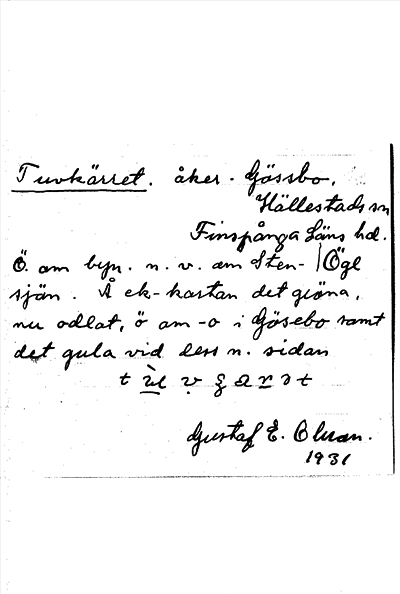 Tuvkärret. åker. Gössbo,
Hällestads sn
Finspånga Läns hd.
Ö. om byn. n. v. om Sten- Ögl
sjön. Å ek-kartan det gröna,
nu odlat, ö om -o i Gösebo samt
det gula vid dess n. sidan
Gustaf E. Olsson.
1931